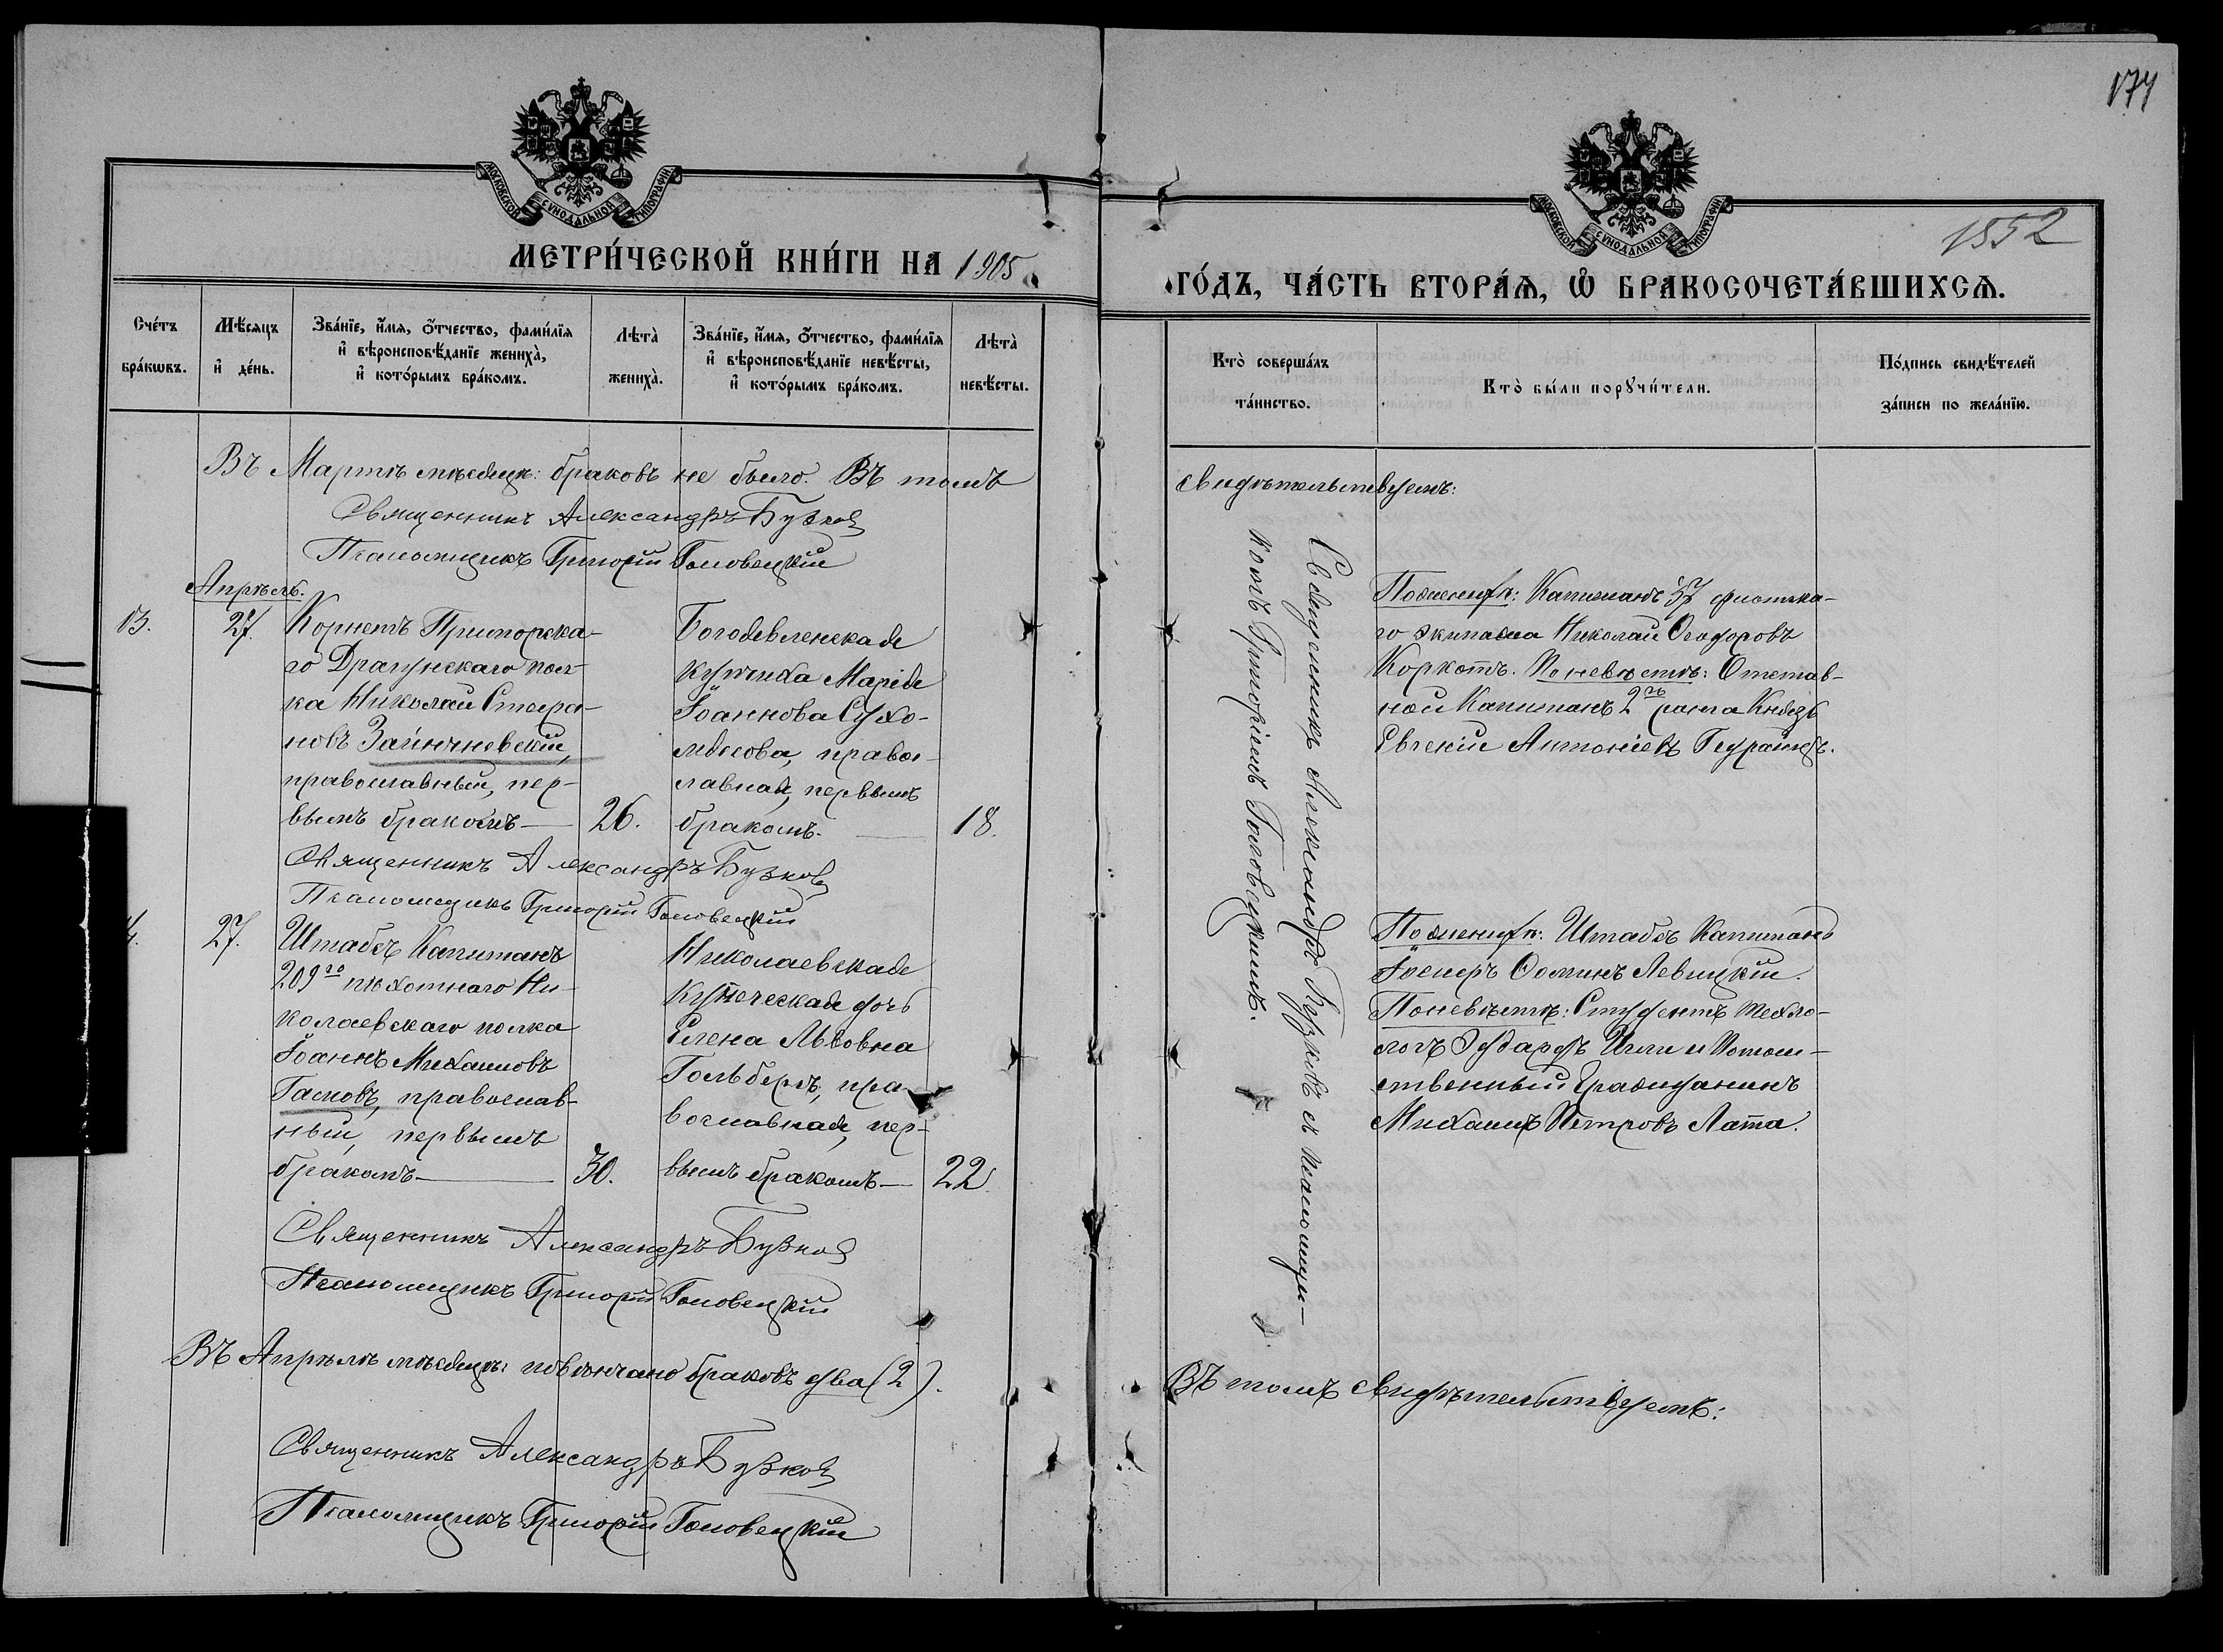 174
1552
МОСКОВСКОЙ СѴНОДАЛЬНОЙ ТИПОГРАФІИ
МОСКОВСКОЙ СѴНОДАЛЬНОЙ ТИПОГРАФІИ
МЕТРИ́ЧЕСКОЙ КНИ́ГИ НА 1905
ГО́ДЪ, ЧА́СТЬ ВТОРА́Ѧ, Ѽ БРАКОСОЧЕТА́ВШИХСѦ.
Сче́тъ
бра́кѡвъ.
Мѣ́сяцъ
и҆ де́нь.
Зва́нїе, и҆́мя, ѻ҆́тчество, фами́лїя
и҆ вѣроисповѣ́данїе жениха̀,
и҆ кото́рымъ бра́комъ.
Лѣта̀
жениха̀.
Зва́нїе, и҆́мя, ѻ҆́тчество, фами́лїя
и҆ вѣроисповѣ́данїе невѣ́сты,
и҆ кото́рымъ бра́комъ.
Лѣта̀
невѣ́сты.
Кто̀ соверша́лъ
та́инство.
Кто̀ бы́ли порꙋчи́тели.
По́дпись свидѣ́телей
за́писи по жела́нїю.
Въ Мартѣ мѣсяцѣ: браковъ не было. Въ томъ
свидѣтельствуемъ:
Священникъ Александръ Бузков
Псаломщикъ Григорій Головецкій
Апрѣль.
13.
27.
Корнетъ Приморска-
го Драгунскаго пол-
ка Николай Стефа-
новъ Зайончневскій,
православный, пер-
вымъ бракомъ
26.
Богоявленская
купчиха Марія
Іоаннова Сухо-
мясова, право-
лавная, первымъ
бракомъ.
18.
Священникъ Александръ Бузковъ съ псаломщи-
комъ Григоріемъ Головецкимъ.
Поженихѣ: Капитанъ 37 флотска-
го экипажа Николай Ѳеодоровъ
Коркотъ. Поневѣстѣ: Отстав-
ной Капитанъ 2го ранга Князь
Евгеній Антоніевъ
Священникъ Александръ Бузковъ
Псаломщикъ Григорій Головецкій
27.
Штабсъ Капитанъ
209го пѣхотнаго Ни-
колаевскаго полка
Іоаннъ Михаиловъ
Гасновъ, православ-
ный, первымъ
бракомъ
30.
Николаевская
Купеческая дочь
Елена Львовна
Гольбергъ, пра-
вославная, пер-
вымъ бракомъ
22
Поженихѣ: Штабсъ Капитанъ
Іосифъ Ѳоминъ Левицкій.
Поневѣстѣ: Студентъ техно-
логъ Эдвардъ Илли и Потом-
ственный Гражданинъ
Михаилъ Петровъ Латта.
Священникъ Александръ Бузков
Псаломщикъ Григорій Головецкій
Въ Апрѣлѣ мѣсяцѣ: повѣнчано браковъ два (2).
Въ томъ свидѣтельствуемъ:
Священникъ Александръ Бузков
Псаломщикъ Григорій Головецкій